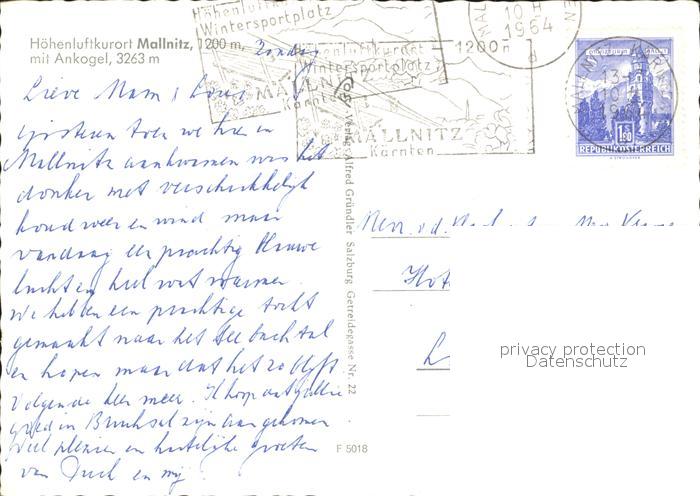 Höhenluftkurort Mallnitz, 1200 m,
mit Ankogel, 3263 m
Zondag
Höhenluftkurort
Wintersportplatz
MALLNITZ
Kärnten
Höhenluftkurort 1200 m
Wintersportplatz
MALLNITZ
Kärnten
10 H
1964
13-
10
REPUBLIK ÖSTERREICH
Lieve Mam &
Gisteren toen we hier in
Mallnitz aankwamen was het
donker met verschrikkelijk
koud weer en wind maar
vandaag een prachtig blauwe
lucht en heel wat warmer.
We hebben een prachtige tocht
gemaakt naar het Seebachtal
en hopen maar dat het zo blijft
Volgende keer meer. Ik hoop dat jullie
goed in Brussel zijn aangekomen
Veel plezier en hartelijke groeten
van en mij
Verlag Alfred Gründler Salzburg Getreidegasse Nr. 22
F 5018
privacy protection
Datenschutz